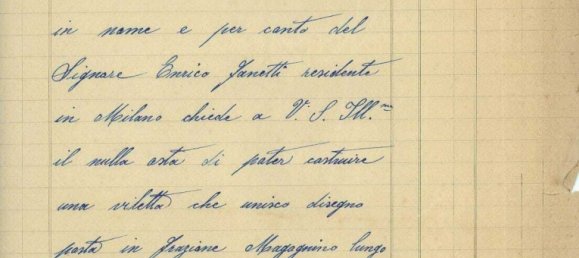 in nome e per conto del
Signore Enrico Zanetti residente
in Milano chiede a V. S. Ill.ma
il nulla osta di poter costruire
una viletta che unisco disegno
posta in frazione Magognino lungo